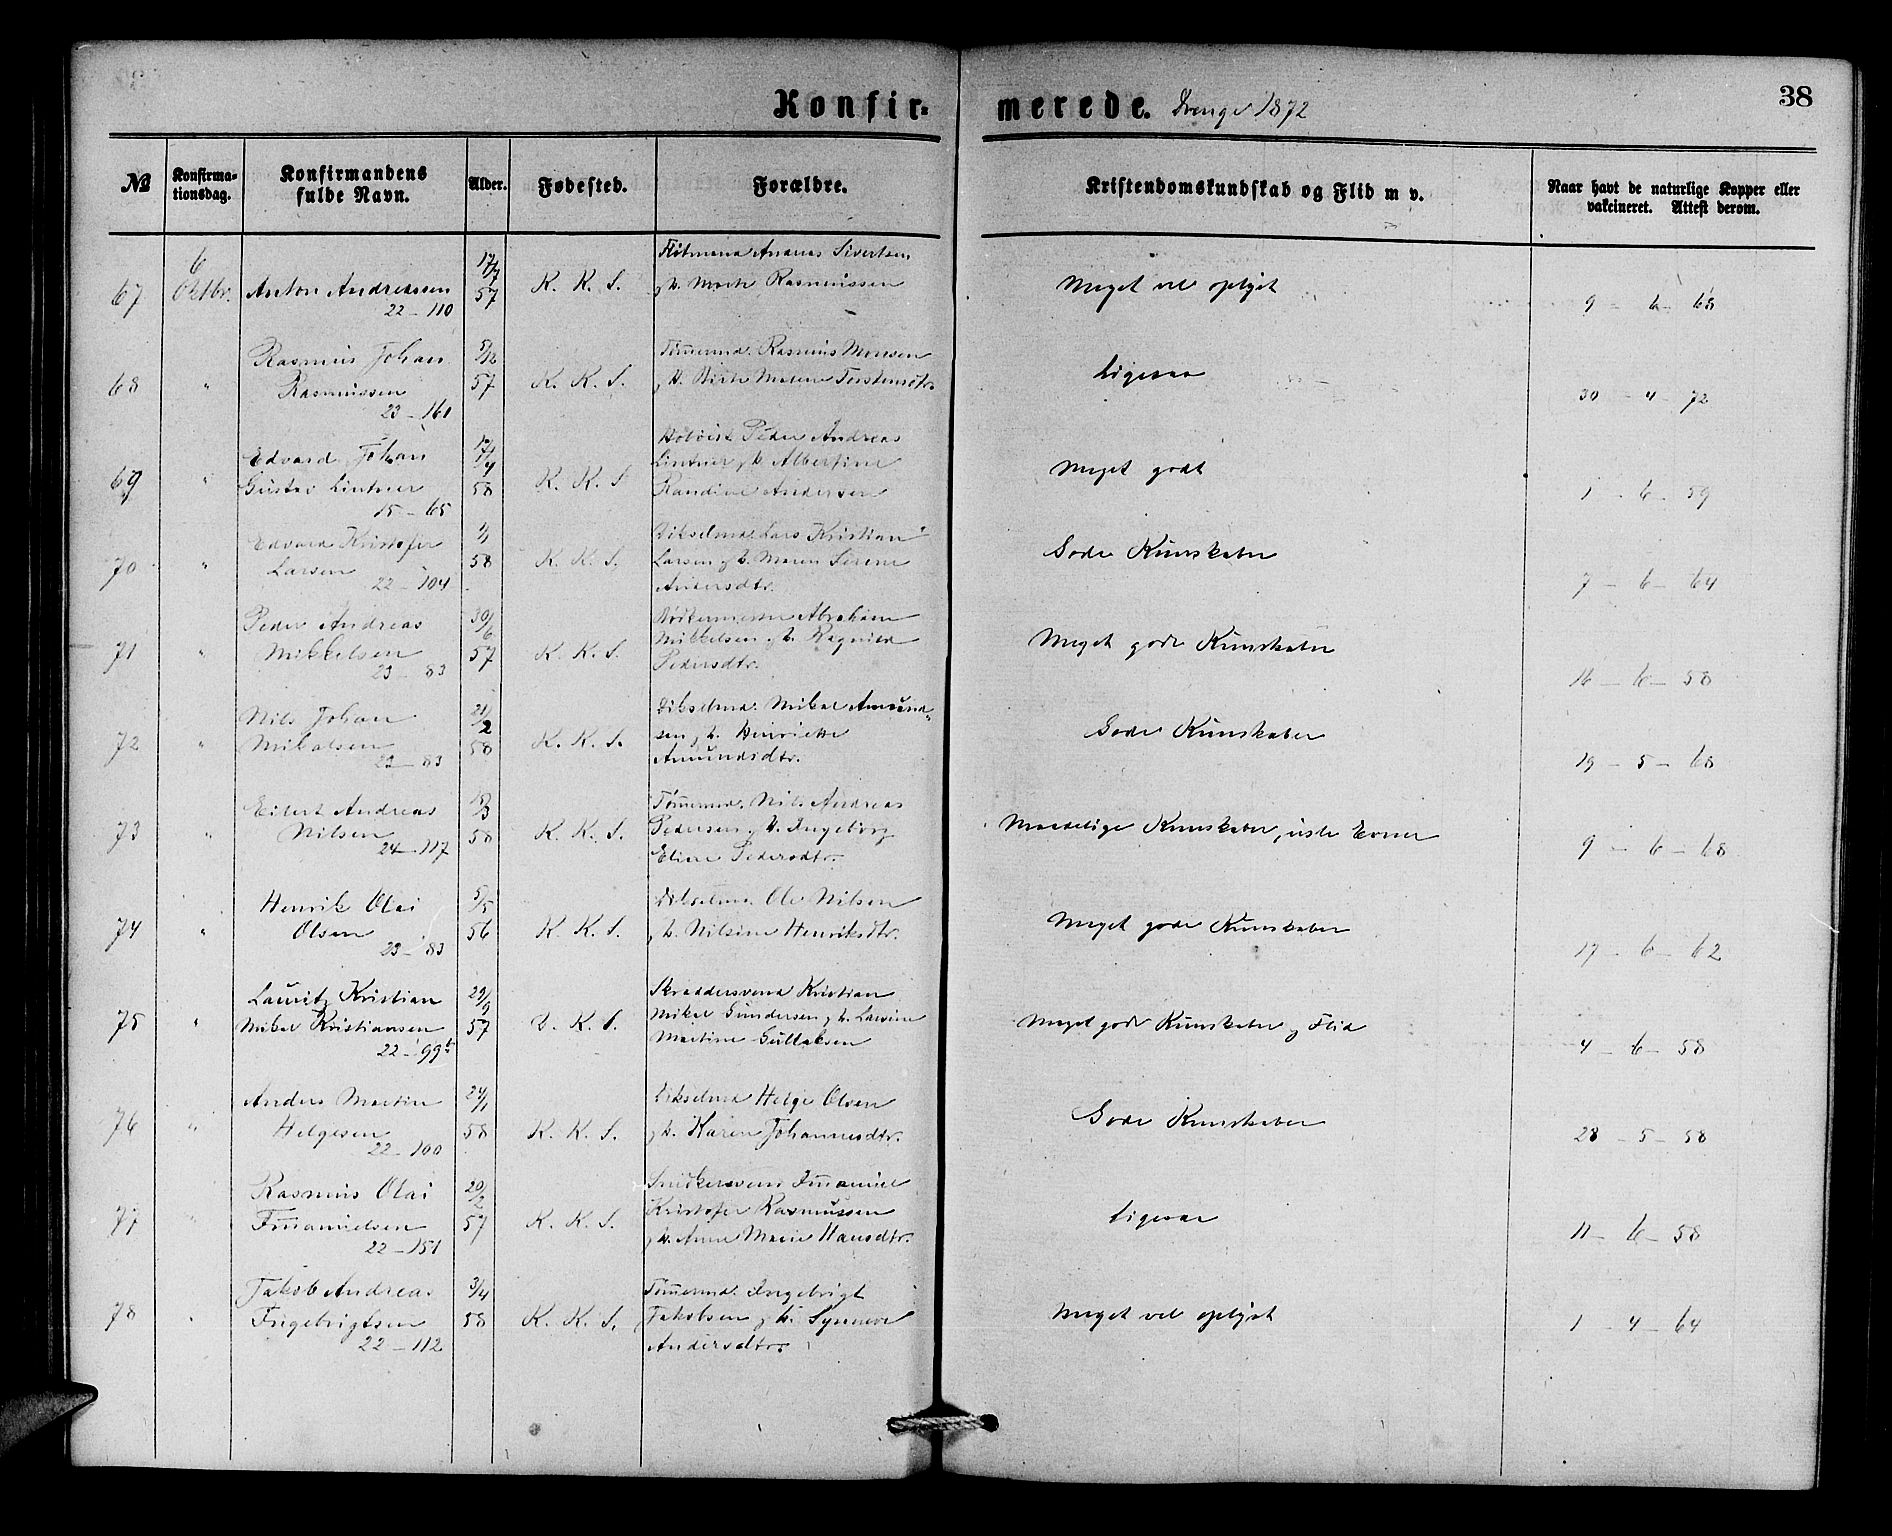 Konfirmerede. Drenge 1872
38
№ Konfirmationsdag. Konfirmandens fulde Navn. Alder. Fødested. Forældre. Kristendomskundskab og Flid m v. Naar havt de naturlige Kopper eller vakcineret. Attest derom.
67 6 Oktbr. Anton Andreassen 22 - 110 17/7 57 K. K. S. Andreas Sivertsen
og h. Marte Rasmussen Meget vel oplyst 9 - 6 - 68
68 " Rasmus Johan
Rasmussen 23 - 160 5/12 57 K. K. S. Tømermd. Rasmus Monsen
og h. Birte Malene Torstensdtr. Ligesaa 30 - 4 - 72
69 " Edvard Johan
Gustav Lintner 15 - 65 17/4 58 K. K. S Peder Andreas
Lintner og h. Albertine
Randine Andersen Meget godt 1 - 6 - 59
70 " Edvard Kristofer
Larsen 22 - 104 1/1 58 K. K. S. Lars Kristian
Larsen og h. Maren Serene
Andersdtr. Gode Kunskaber 7 - 6 - 64
71 " Peder Andreas
Mikkelsen 23 - 83 30/6 57 K. K. S. Bødkermester Abraham
Mikkelsen og h. Ragnild
Pedersdtr. Meget gode Kunskaber 16 - 6 - 58
72 " Nils Johan
Mikalsen 23 - 83 21/2 58 K. K. S. Mikal Amund-
sen og h. Henriette
Amundsdtr. Gode Kunskaber 19 - 5 - 68
73 " Eilert Andreas
Nilsen 24 - 117 58 K. K. S. Tømermd. Nils Andreas
Pedersen og h. Ingeborg
Eline Pedersdtr. Maadelige Kunskaber, usle Evner 9 - 6 - 68
74 " Henrik Olai
Olsen 23 - 83 5/5 56 K. K. S. Ole Nilsen
og h. Nilsine Henriksdtr. Meget gode Kunskaber 17 - 6 - 62
75 " Lauritz Kristian
Mikal Kristiansen 22 - 99b 29/9 57 D. K. S. Skræddersvend Kristian
Mikal Gundersen og h. Larsine
Martine Gullaksen Meget gode Kunskaber og Flid 4 - 6 - 58
76 " Anders Martin
Helgesen 22 - 100 24/1 58 K. K. S. Helge Olsen
og h. Karen Johannesdtr. Gode Kunskaber 28 - 5 - 58
77 " Rasmus Olai
Imanuelsen 22 - 151 20/2 57 K. K. S. Snedkersvend Imanuel
Kristofer Rasmussen
og h. Anne Marie Hansdtr. Ligesaa 11 - 6 - 58
78 " Jakob Andreas
Ingebrigtsen 22 - 112 3/4 58 K. K. S. Tømermd. Ingebrigt
Jakobsen og h. Synneve
Andersdtr. Meget vel oplyst 1 - 4 - 64